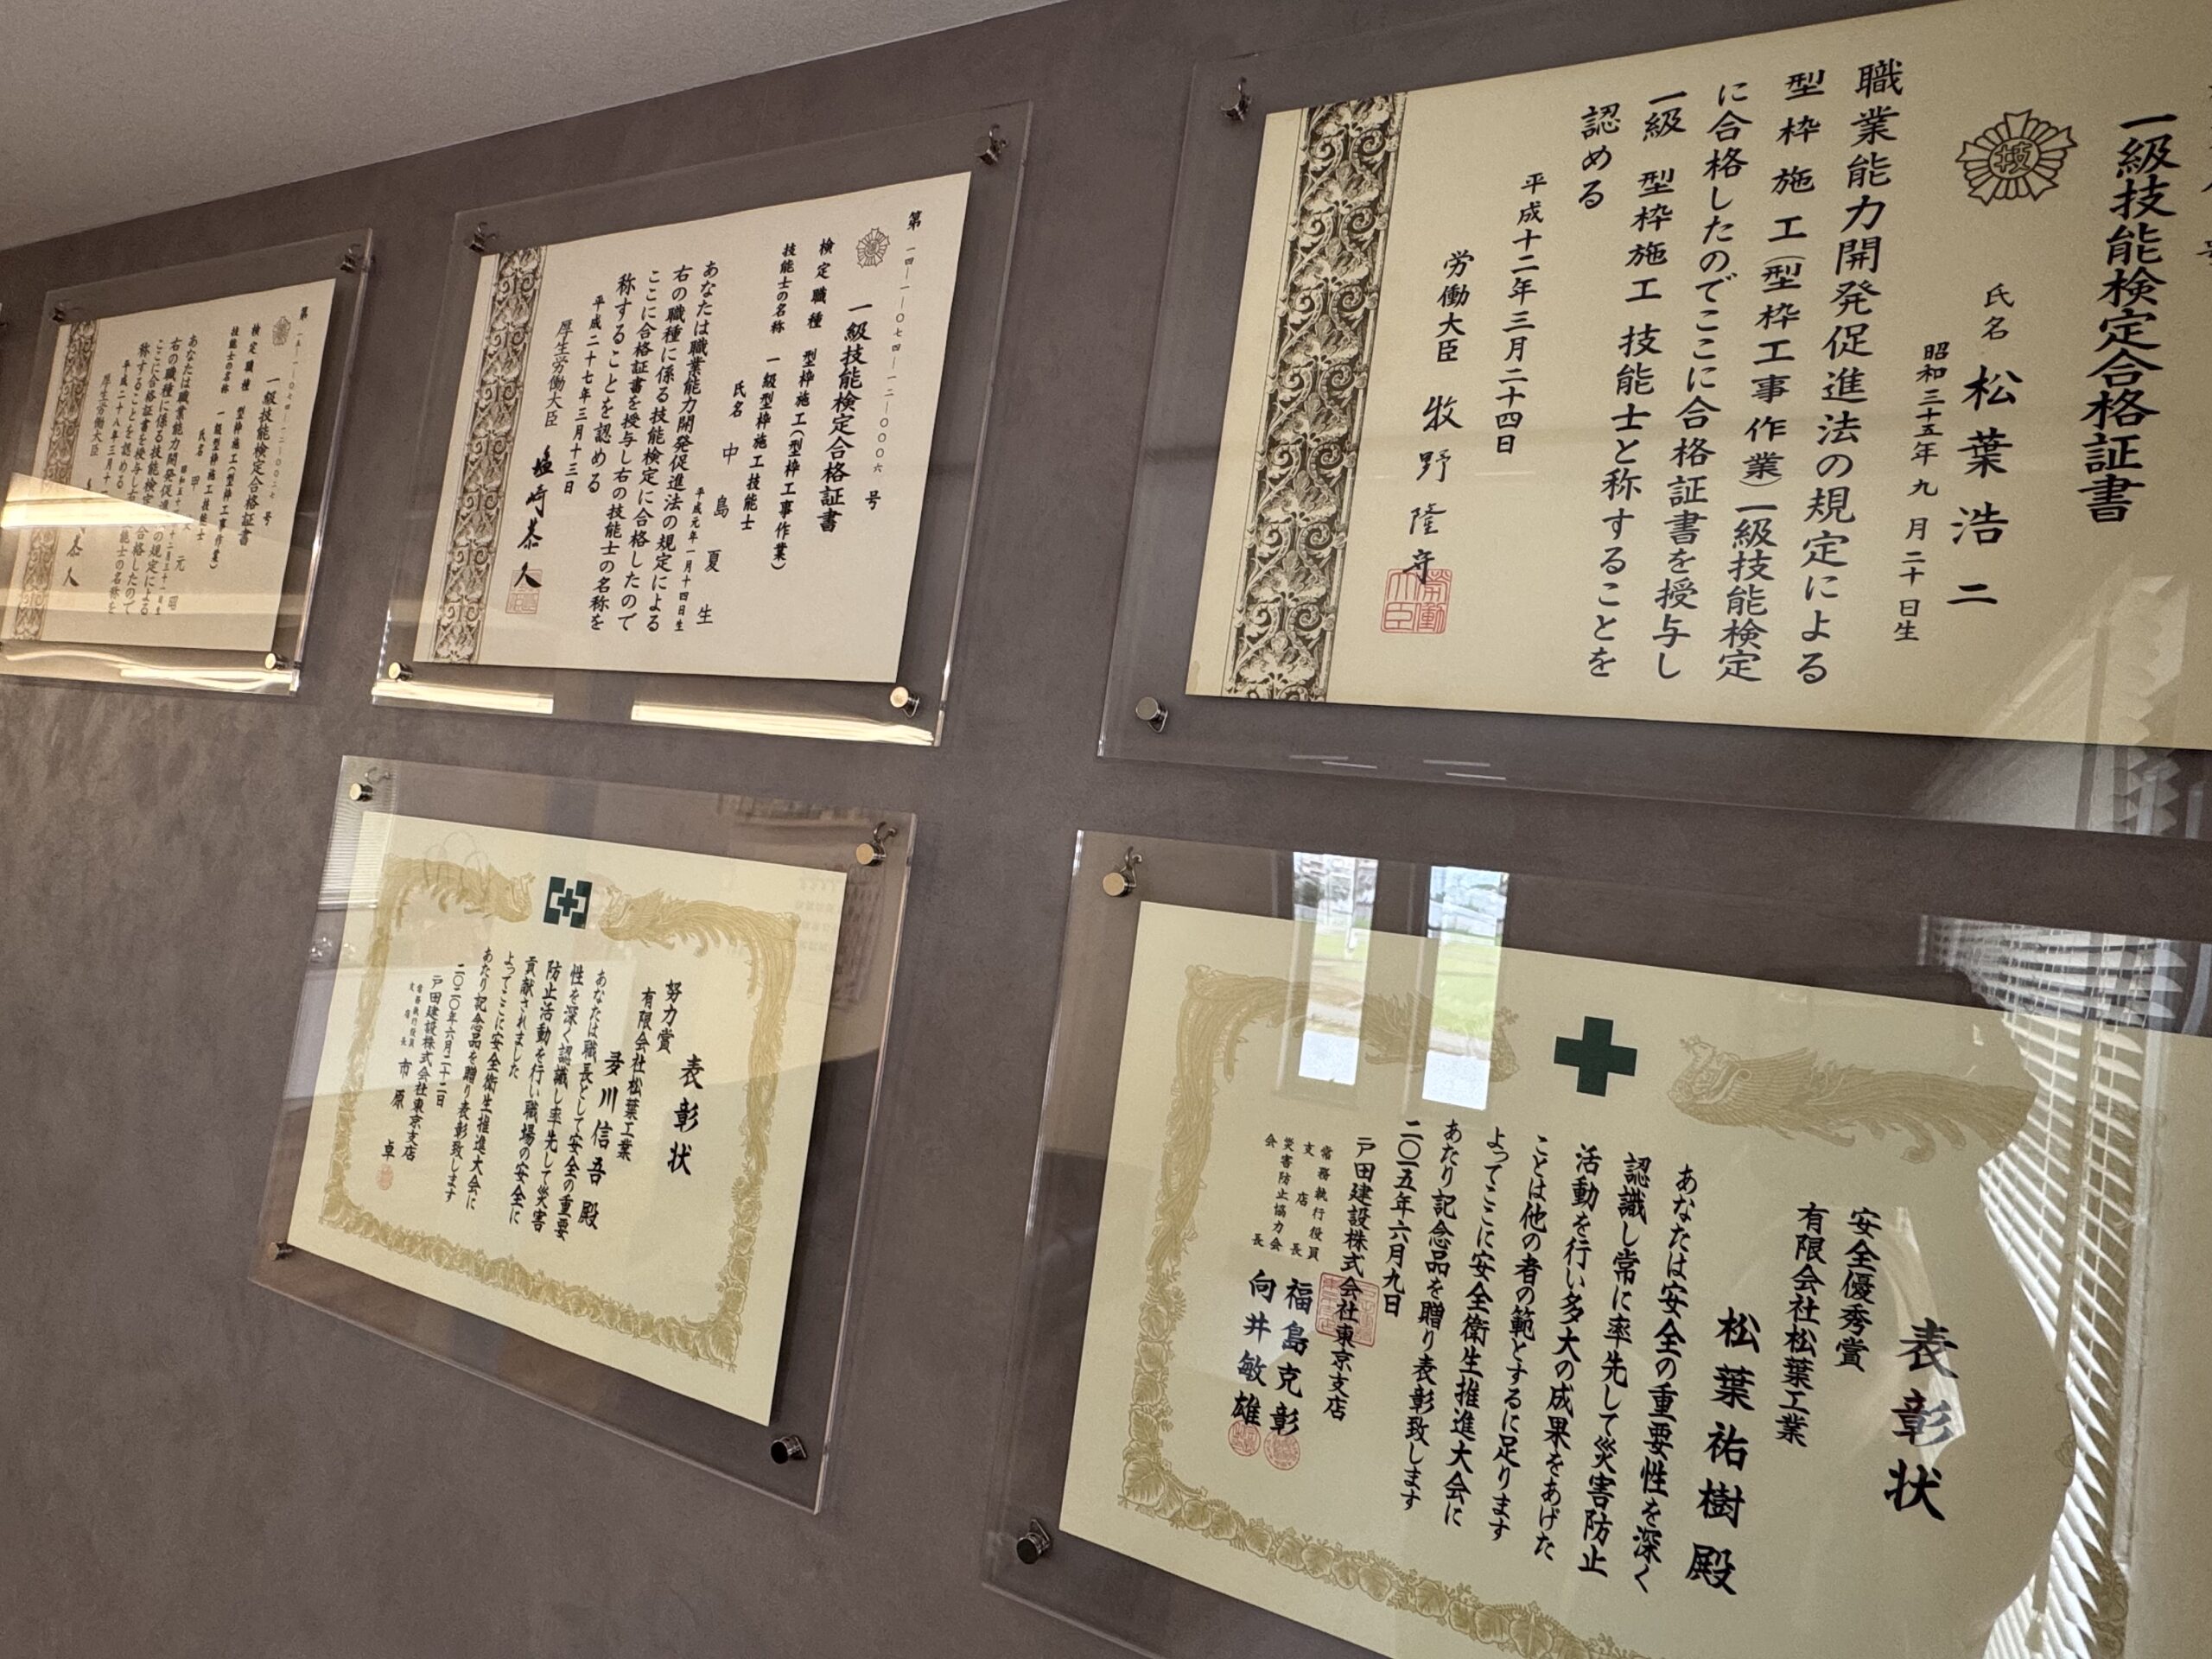 一級技能検定合格証書
氏名 松葉浩二
昭和三十五年九月二十日生
職業能力開発促進法の規定による
型枠施工(型枠工事作業)一級技能検定
に合格したのでここに合格証書を授与し
一級 型枠施工 技能士と称することを
認める
平成十二年三月二十四日
労働大臣 牧野隆守
第一四―一―〇七四―一二―〇〇〇六号
一級技能検定合格証書
検定職種 型枠施工(型枠工事作業)
技能士の名称 一級型枠施工技能士
氏名 中島夏生
平成元年一月十四日生
あなたは職業能力開発促進法の規定による
右の職種に係る技能検定に合格したので
ここに合格証書を授与し右の技能士の名称を
称することを認める
平成二十七年三月十三日
厚生労働大臣 塩崎恭久
一級技能検定合格証書
検定職種 型枠施工(型枠工事作業)
技能士の名称 一級型枠施工技能士
氏名
あなたは職業能力開発促進法の規定による
右の職種に係る技能検定に合格したので
ここに合格証書を授与し右の技能士の名称を
称することを認める
平成二十八年三月十
厚生労働大臣
表彰状
安全優秀賞
有限会社松葉工業
松葉祐樹殿
あなたは安全の重要性を深く
認識し常に率先して災害防止
活動を行い多大の成果をあげた
ことは他の者の範とするに足ります
よってここに安全衛生推進大会に
あたり記念品を贈り表彰致します
二〇一五年六月九日
戸田建設株式会社東京支店
常務執行役員
支店長 福島克彰
災害防止協力会
会長 向井敏雄
表彰状
努力賞
有限会社松葉工業
川信吾殿
あなたは職長として安全の重要
性を深く認識し率先して災害
防止活動を行い職場の安全に
貢献されました
よってここに安全衛生推進大会に
あたり記念品を贈り表彰致します
二〇二〇年六月二十二日
戸田建設株式会社東京支店
常務執行役員
支店長 市原卓